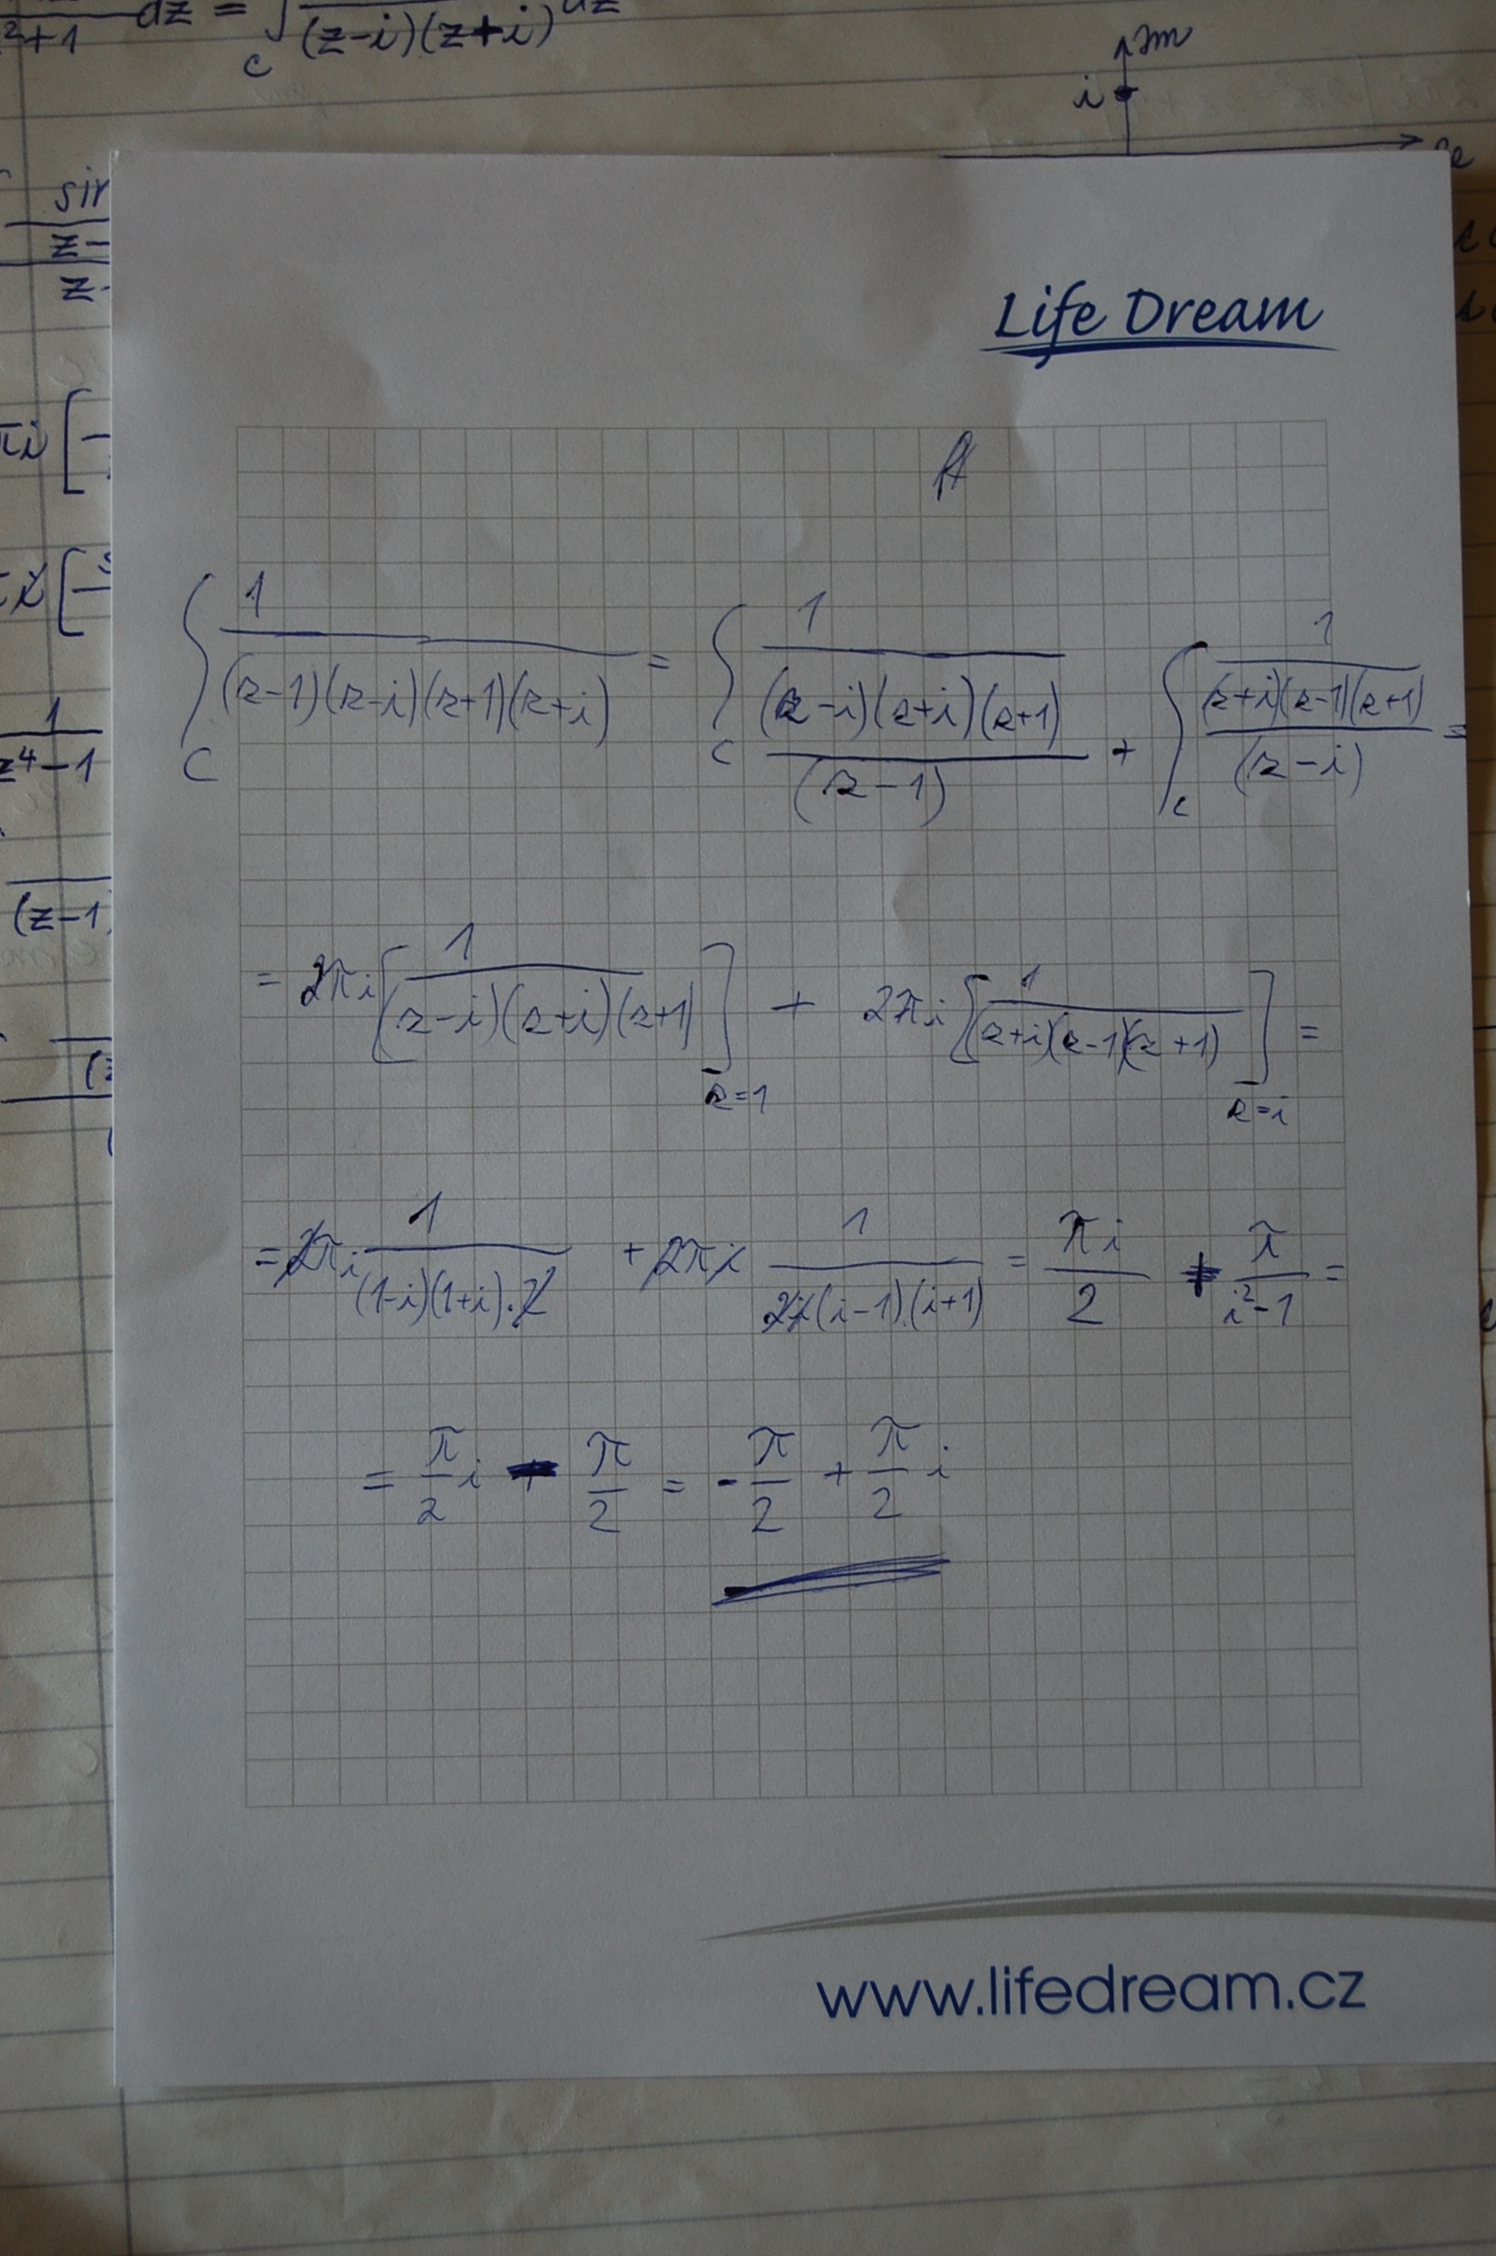 z²+1 dz = ∫ (z-i)(z+i) dz
C
Im
i
sin
z-
z-
Life Dream
πi [
A
∫_C 1/((z-1)(z-i)(z+1)(z+i)) = ∫_C (1/((z-i)(z+i)(z+1)))/(z-1) + ∫_C (1/((z+i)(z-1)(z+1)))/(z-i) =
1/(z⁴-1)
(z-1)
= 2πi [1/((z-i)(z+i)(z+1))]_{z=1} + 2πi [1/((z+i)(z-1)(z+1))]_{z=i} =
= 2πi 1/((1-i)(1+i)·2) + 2πi 1/(2i(i-1)(i+1)) = πi/2 + π/(i²-1) =
= π/2 i - π/2 = - π/2 + π/2 i
www.lifedream.cz